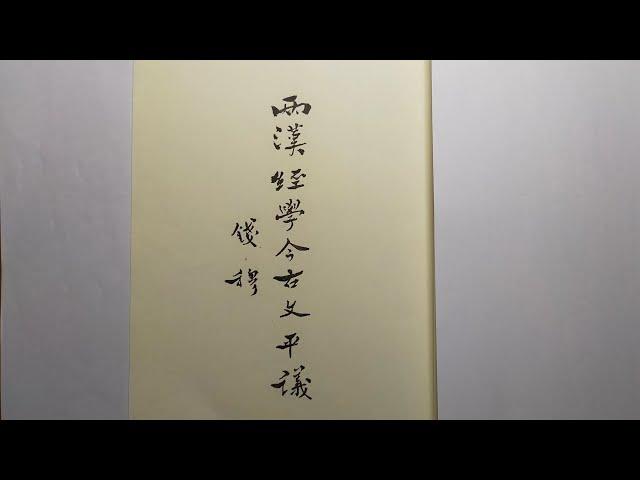 兩漢經學今古文平議
錢穆